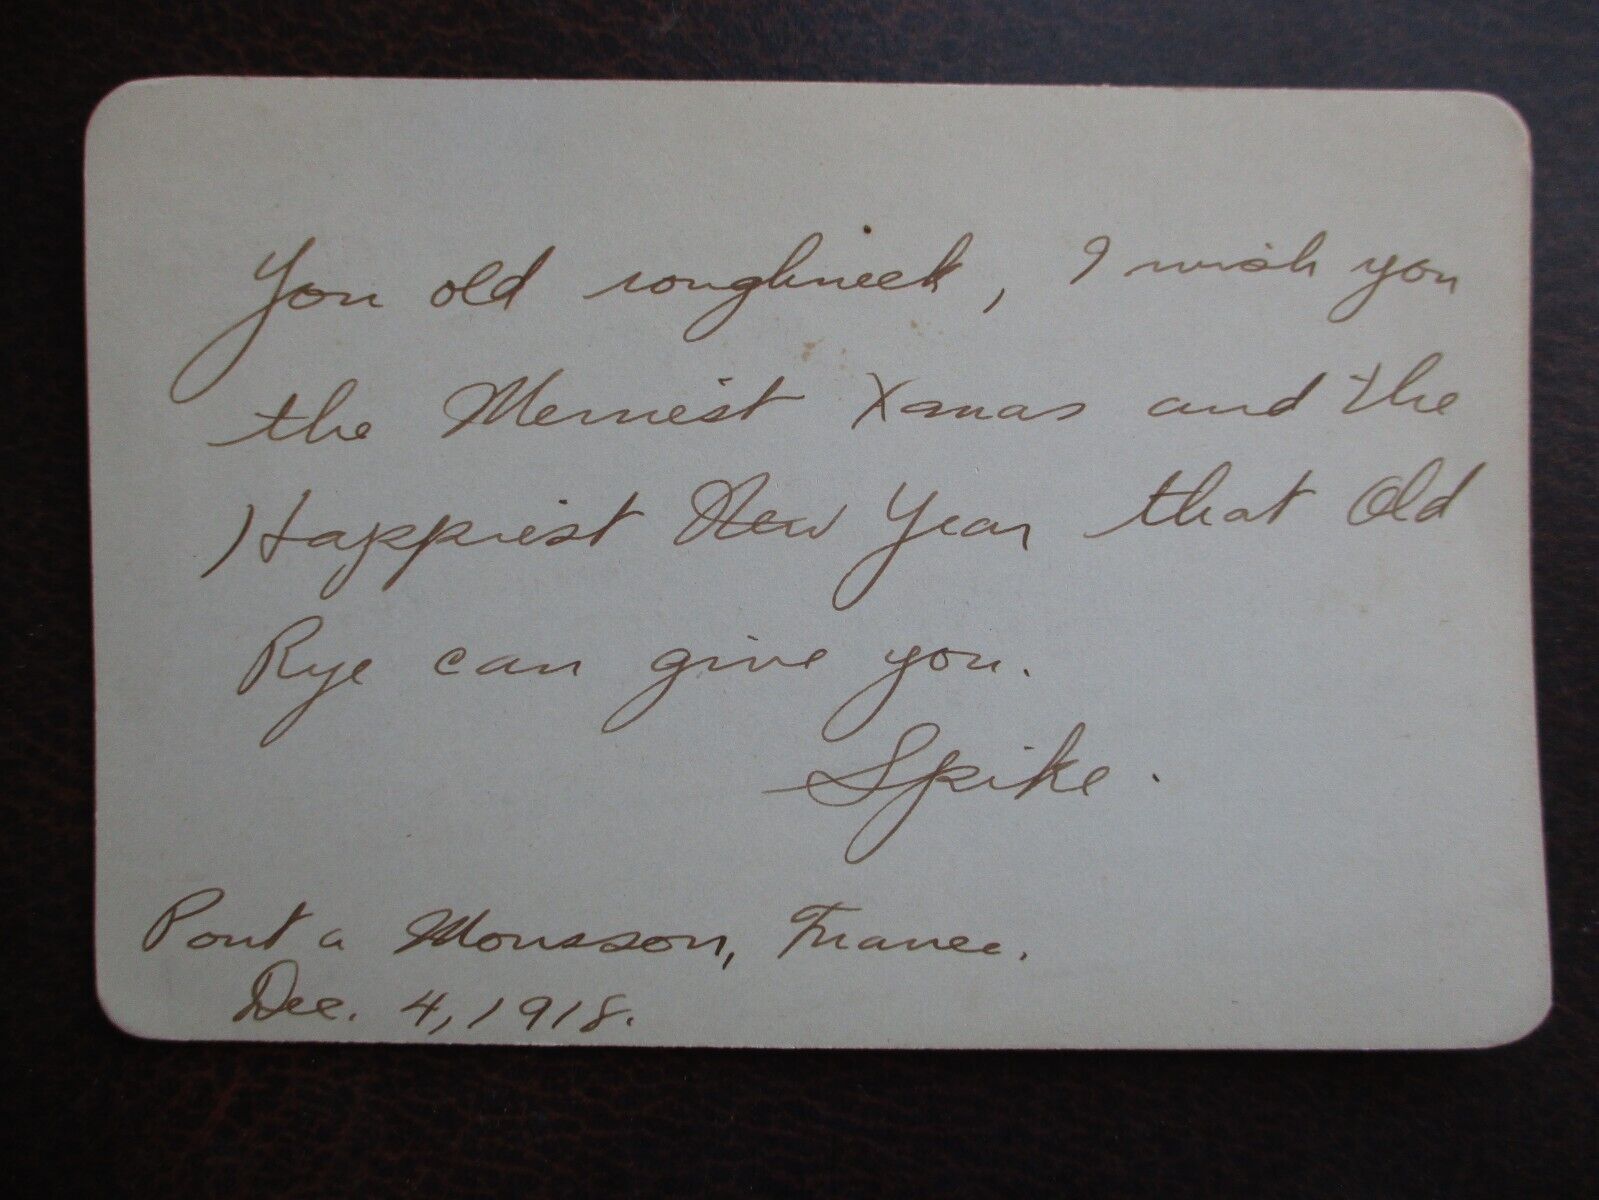 You old roughneck, I wish you
the Merriest Xmas and the
Happiest New Year that Old
Rye can give you.
Spike.
Pont a Mousson, France.
Dec. 4, 1918.